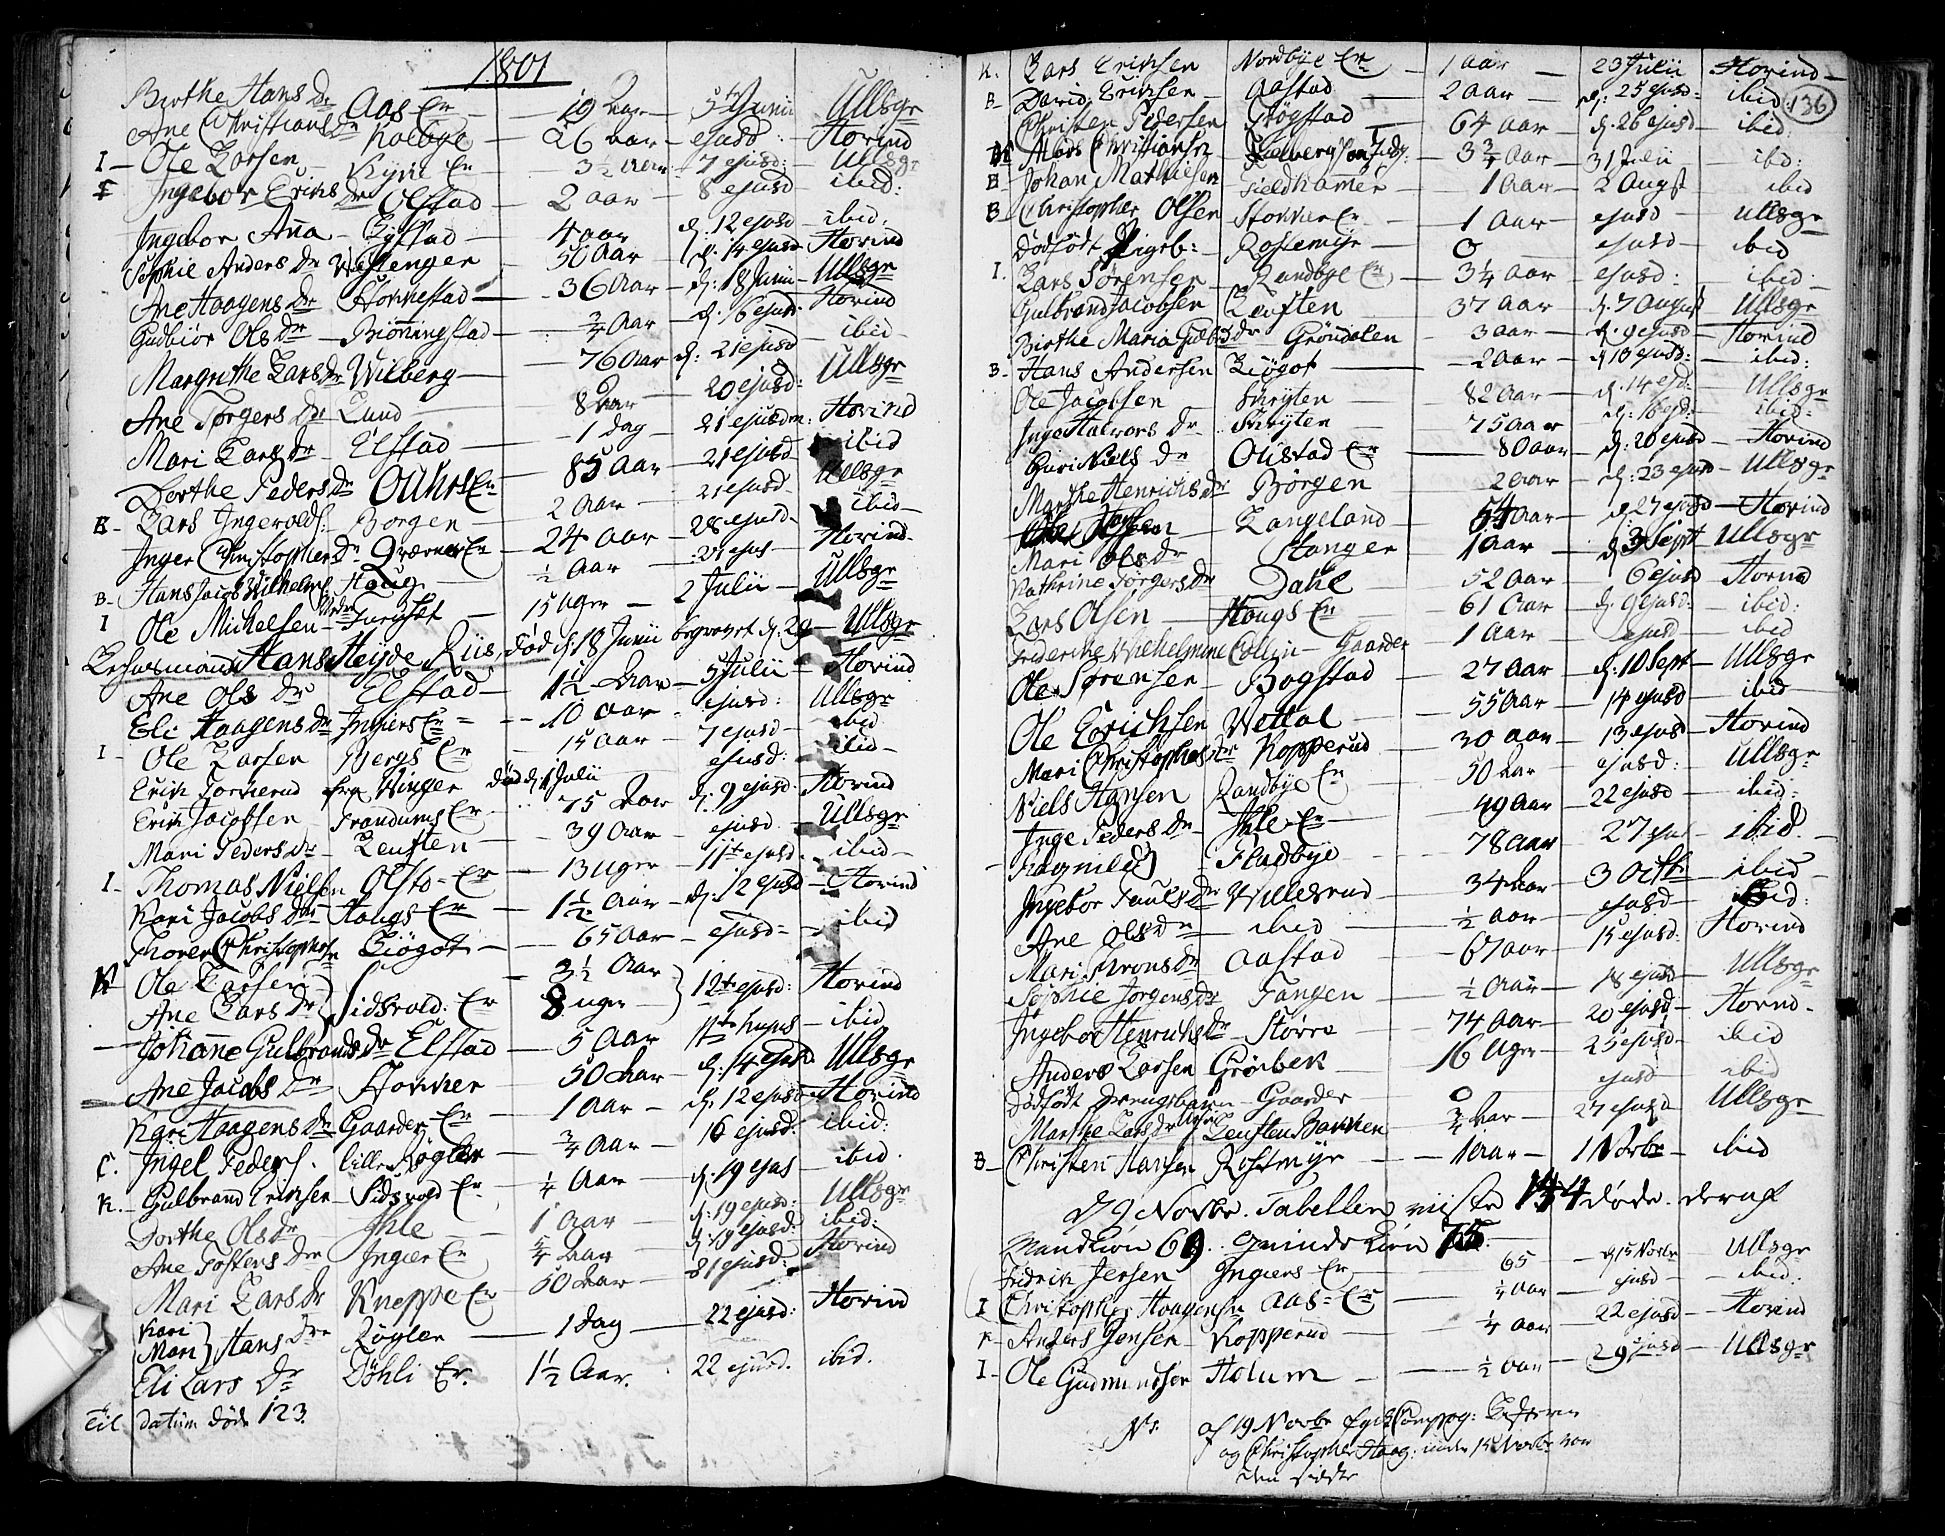 1801
Birthe Hans Dr Aas Er — 19 Aar — 5te Junii Ullsgr
Ane Christians Dr Kolbye — 26 Aar — ejusd: Hovind
I — Ole Larsen — Kyni Er — 3½ Aar — 7 ejusd: — Ullsgr
I Ingebor Eriks Dr Olstad — 2 aar — 8 ejusd ibid:
Ingebor Aña — Lystad — 4 aar d. 12 ejusd — ibid.
Sophie Anders Dr Westenger — 50 Aar — d: 14 ejusd Hovind
Ane Haagens Dr Stokkestad — 36 Aar — d: 18 Junii — Ullsgr
Gudbiør Ols Dr — Biøringstad — ¾ Aar — d. 16 ejusd. Hovind
Margrethe Lars Dr Wilberg — 76 Aar d: 21 ejusd — ibid —
Ane Torgers Dr Lund — 8 Aar 20 ejusd: Ullsgr
Mari Lars Dr Elstad — 1 dag — 21 ejusdem: Hovind
Dorthe Peders Dr — 85 Aar — 21 ejusd — ibid
B — Lars Ingevolds: Borgen — 2 Aar — 21 ejusd — Ullsgr
Inger Christopher Dr Qværner Er — 24 Aar — 28 ejusd — ibid —
B — Hans Jacob Wilhelms: Haug — ½ Aar — 21 ejus — Hovind.
I Ole Michelsen — Nedre Furuset — 15 Uger — 2 Julii — Ullsgr
Hans Heyde Riis, død d. 18 Junii begravet d. 29 — Ullsgr
Ane Ols Dr Elstad — 1½ Aar — 5 Julii — Hovind
Eli Haagens Dr Ingiers Er — 10 aar — ejusd: Ullsgr
I — Ole Larsen Bergs Er — 15 aar — 7 ejusd — ibid
Erik Torkerud fra Winger død d. 1 Julii ejusd: — ibid —
Erik Jacobsen — Trandums Er — 75 Aar d. 9 ejusd. Hovind
Mari Peders Dr — Leuften — 39 Aar — ejusd. — Ullsgr
I — Thomas Nielsen Olsto Er — 13 Uger — 11te ejusd. — ibid —
Kari Jacobs Dr — Haugs Er — 1½ Aar — d. 12 ejusd — Hovind
Thorer Christophers Dr Liøgot — 65 Aar — ejusd — ibid
K Ole Larsen — 3½ Aar
Ane Lars Dr } Sidsvold Er 8 uger } 12te ejusd: Hovind
Johane Gulbrands Dr Elstad — 5 Aar 11te hujus — ibid
Ane Jacobs Dr Stokker — 50 Aar d. 14 ejusd Ullsgr
Haagens Dr Gaarder Er — 1 Aar — d. 12 ejusd — Hovind
C. Ingel Peders. Lille Røgler ¾ Aar — 16 ejusd: ibid:
K. — Gulbrand Eriksen — Sidsvold Er ¼ Aar — d. 19 ejus — ibid.
Dorthe Ols Dr Ihle — 1 Aar — d. 19 ejusd: Ullsgr
Ane Tostens Dr Ingier Er ¾ Aar d: 19 ejusd. ibid:
Mari Lars Dr Kneppe Er 50 Aar — 21 ejusd: Hovind
Kari
Mari } Hans Dr Røgler — 1 dag — 22 ejusd: Hovind
Eli Lars Dr Døhli Er. 1½ Aar. 22 ejusd. ibid.
til datum døde 123.
136
K. Lars Eriksen Nordbye Er — 1 aar — 23 Julii Hovind —
B — David Eriksen — Aastad — 2 Aar — d: 25 ejusd: ibid
Christen Pedersen Løgstad — 64 Aar — d. 26 ejusd — ibid:
Mads Christiansen — 3¾ Aar — 31 Julii — ibid:
B — Johan Mathiesen — Fieldhamer — 1 Aar — 2 Augst — ibid
B — Christopher Olsen Stokker Er — 1 Aar — ejusd — Ullsgr
Dødfødt Pigeb: — Rostemÿr — 0 ejusd — ibid
I. Lars Sørensen — Randbye Er — 3¼ Aar — ejusd: ibid —
Gulbrand Jacobsen Leuften — 37 Aar — d. 7 August Ullsgr
Birthe Maria Dr Grøndalen — 3 aar — d. 9 ejusd — Hovind
B — Hans Andersen Liøgot — 2 aar — d. 13 ejusd: — ibid:
Ole Jacobsen Skryten — 82 Aar — d. 14 ejd: — Ullsgr
Inge Halvors Dr Skryten — 75 aar — d. 16 ejd: — ibid:
Guri Niels Dr Olistad Er — 80 aar — d. 20 ejusd — Hovind
Marthe Henrichs Dr Børgen — 2 aar — d. 23 ejusd — Ullsgr
Langeland — 54 Aar — d. 27 ejusd — Hovind
Mari Ols Dr Stanger 1 Aar — d. 3 Sept Ullsgr
Kathrine Jørgens Dr Dahl — 52 Aar — 6 ejusd Hovind
Lars Olsen — Haugs Er — 61 Aar d. 9 ejusd: — ibid:
Friderike Wilhelmine Collin — Gaarder 1 Aar — ejusd — ibid
Ole Sørensen — Bogstad — 27 Aar — d. 10 Sept — Ullsgr
Ole Erichsen Wettal — 55 Aar — 14 ejusd — ibid —
Mari Christophers Dr Kopperud — 30 aar — 13 ejusd — Hovind
Niels Hansen Randbye Er — 50 Aar — ejusd: — Ullsgr
Inge Peders Dr — Ihle Er — 49 Aar — 22 ejusd — ibid:
Ragnild Fladbye — 78 aar — 27 ejusd — ibid. —
Ingebor Pauls Dr Willerud — 34 Aar — 3 Octbr — ibid —
Ane Ols Dr — ibid — ½ aar — ejusd — ibid:
Mari Arons Dr Aastad — 67 aar — 15 ejusd. Hovind
Sophie Jørgens Dr Tangen — ½ Aar — 18 ejusd — Ullsgr
Ingebor Henrichs Dr — Større — 74 Aar — 20 ejusd — Hovind.
Anders Larsen Grønbek — 16 Uger — 25 ejusd — ibid
Dødfødt Drengebarn — Gaarder — 0 ejusd — ibid
Marthe Lars Dr Leuften Bakken — ¾ Aar — 27 ejusd — Ullsgr
B — Christen Hansen Rostmyr — 1 Aar — 1 Novbr — ibid
d 9 Novbr. Tabellen miste 144 døde. deraf
Mandkiøn 69. Qvindekiøn 75.
Fridrik Jensen Ingiers Er 65 — d 15 Novbr Ullsgr
I Christopher Haagensen Aas Er — ¼ aar — ejusd — ibid:
K — Anders Jensen — Kopperud — ¼ aar — 22 ejusd — Hovind
I — Ole Gudmundsør Holum — ½ Aar — 29 ejusd — Ullsgr
Ns. af 19 Novbr
og Christopher Haag: under 15 Novbr var
den sidste